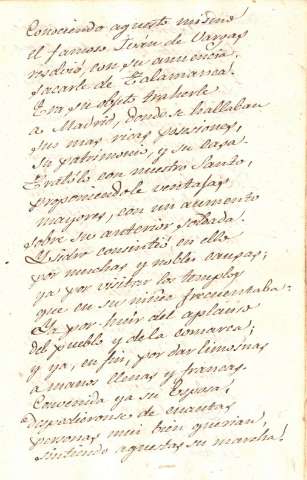 Conociendo aquesto mismo
el famoso Iván de Vargas
resolvió, con su anuencia,
sacarle de Talamanca.
Era su objeto traherle
a Madrid, donde se hallaban
sus mas ricas posesiones,
su patrimonio, y su casa.
Tratólo con nuestro Santo,
proponiendole ventajas
mayores, con un aumento
sobre su anterior soldada.
Ysidro consintió en ello
por muchas y nobles causas;
ya por visitar los templos
que en su niñez frecuentaba:
Ya por huir del aplauso
del pueblo y de la comarca;
y ya, en fin, por dar limosnas
a manos llenas y francas.
Convenida ya su Esposa,
despidieronse de cuantas
personas mui bien querian,
sintiendo aquestas su marcha.